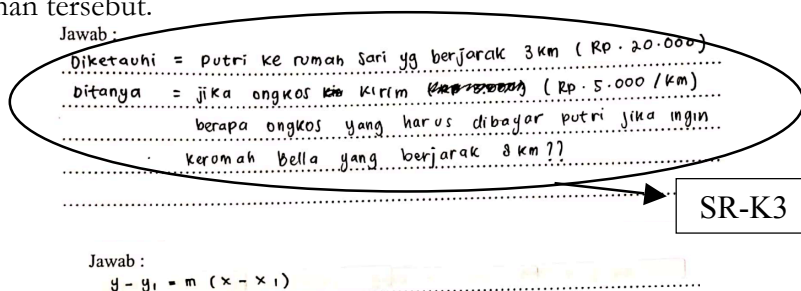 nan tersebut.
Jawab :
Diketauhi = Putri ke rumah Sari yg berjarak 3 km ( Rp. 20.000)
Ditanya = jika ongkos kirim ( Rp. 5.000 / km)
berapa ongkos yang harus dibayar putri jika ingin
kerumah Bella yang berjarak 8 km ??
SR-K3
Jawab :
y - y₁ = m (x - x₁)